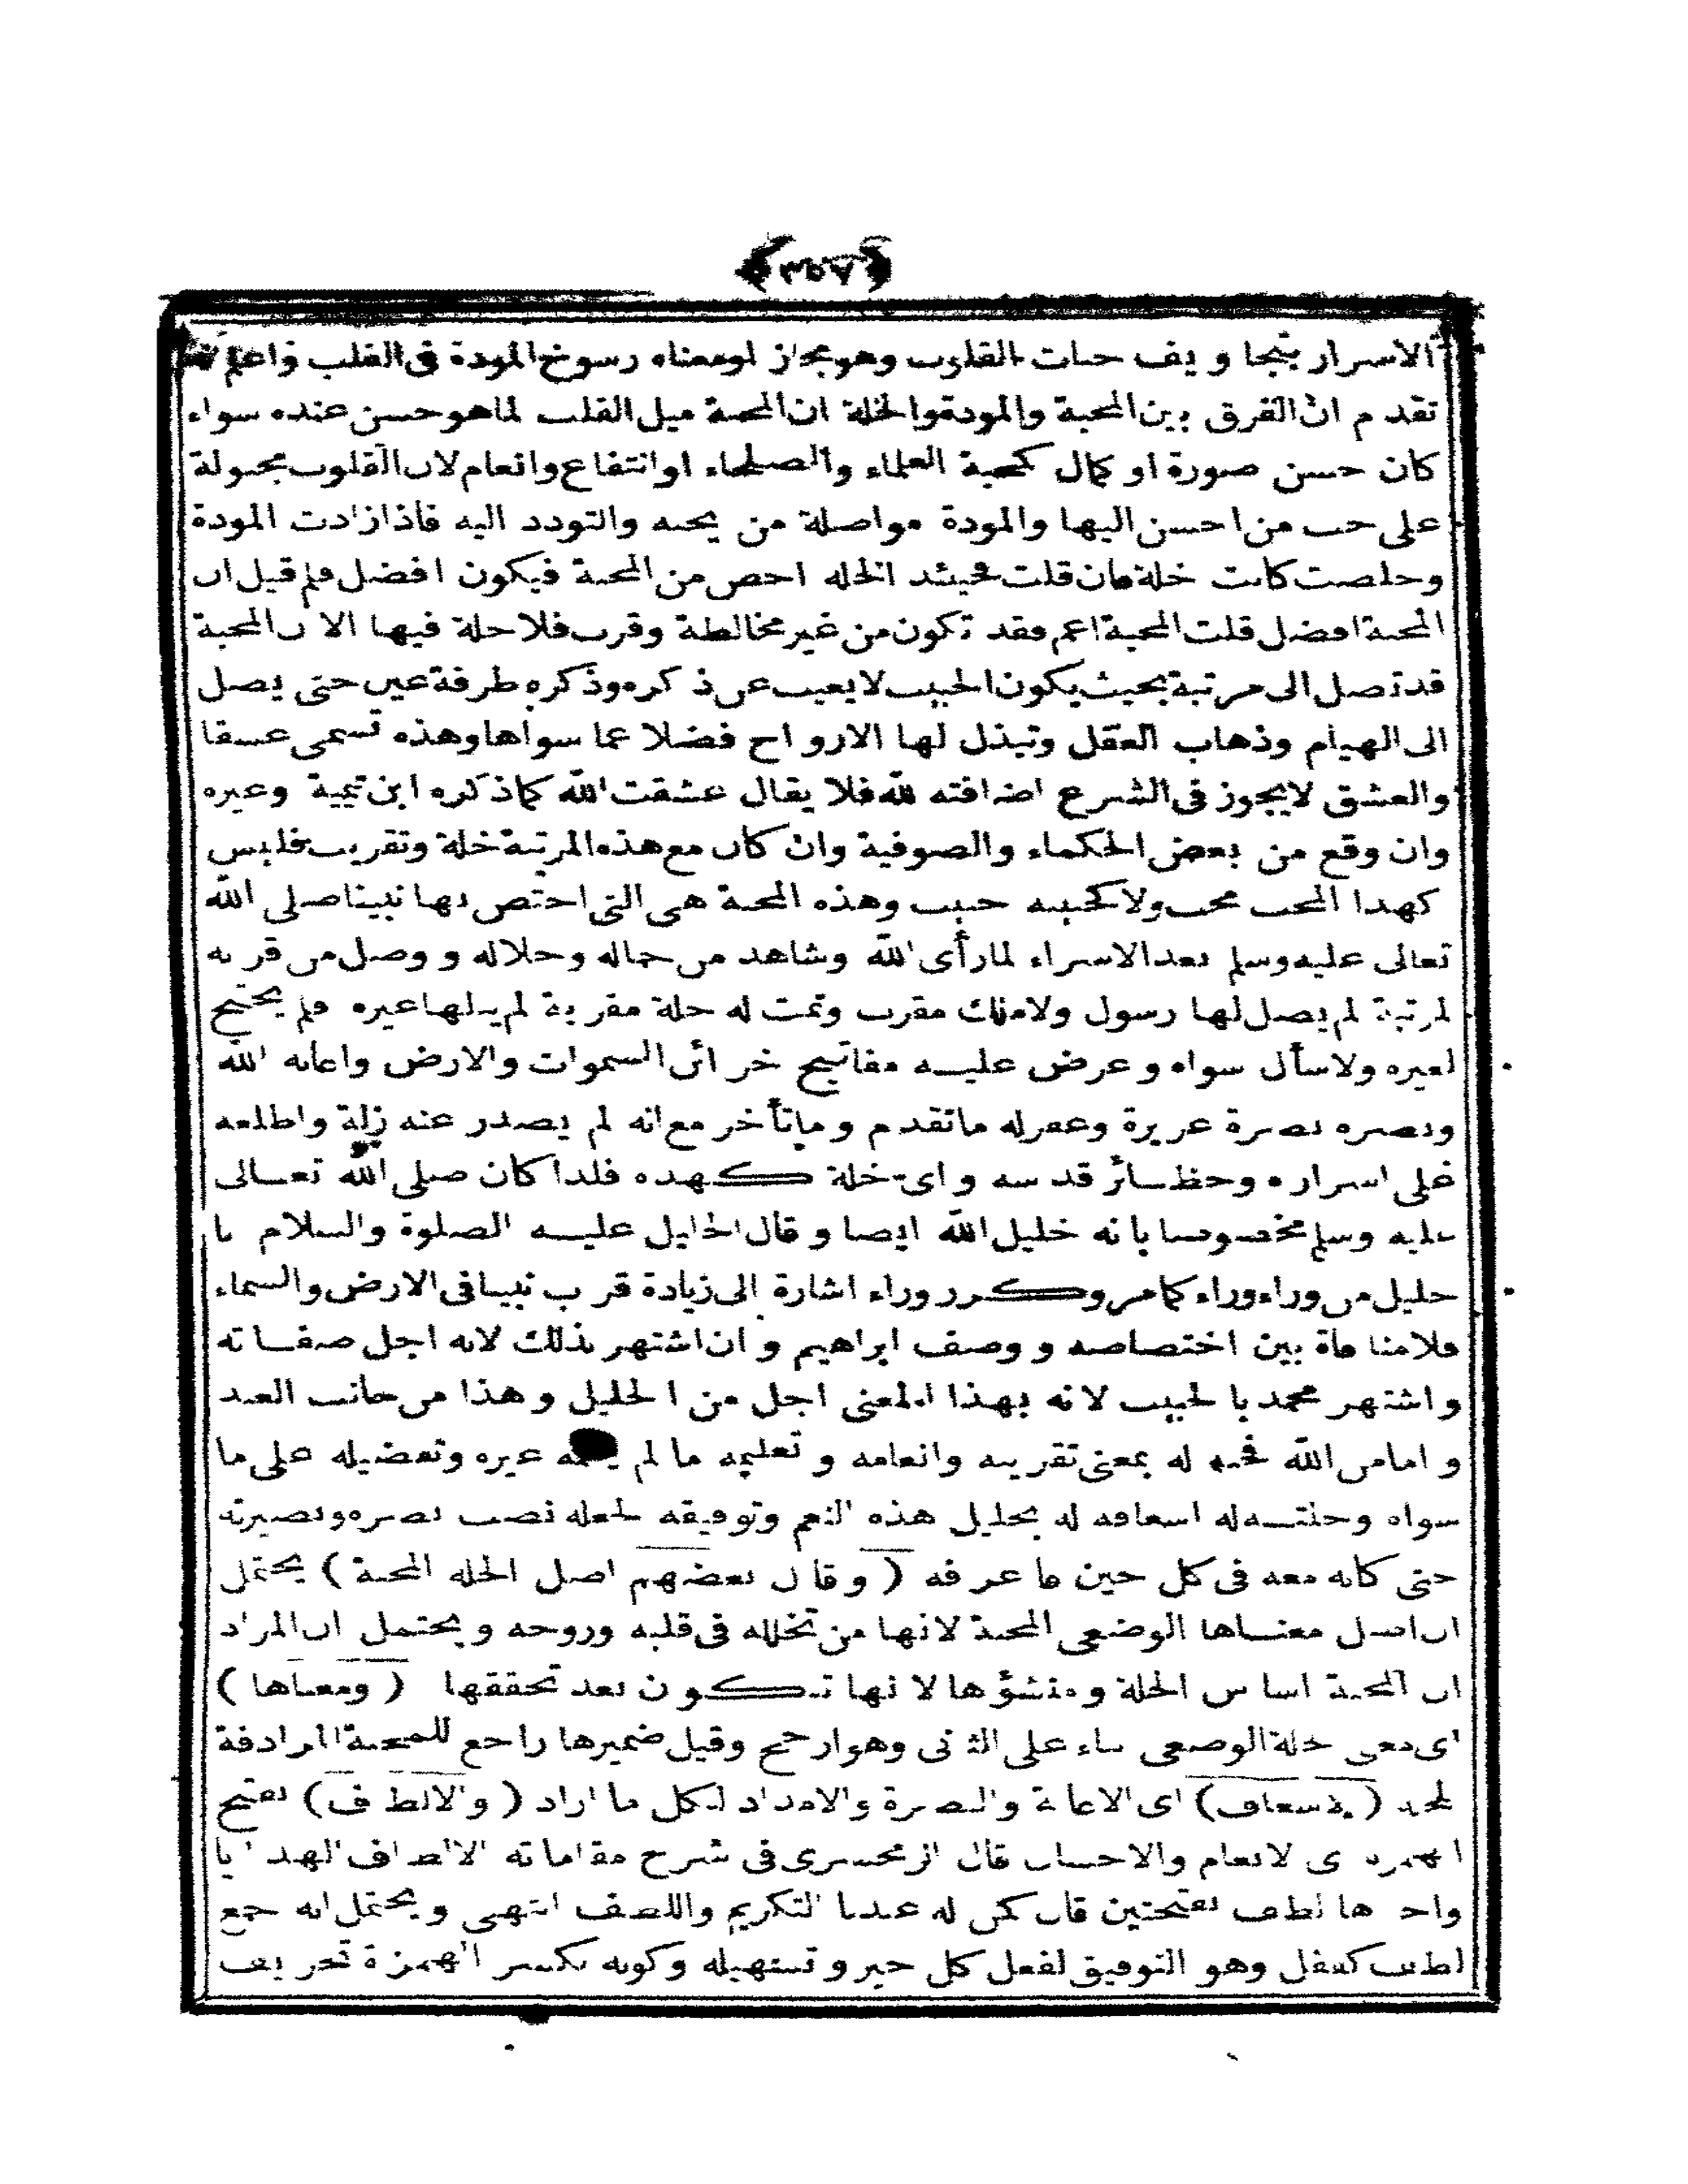 ﴿٣٥٧﴾
الاسرار وهو مجاز او معناه رسوخ المودة فى القلب واعلم
تقدم ان الفرق بين المحبة والمودة والخلة ان المحبة ميل القلب لما هو حسن عنده سواء
كان حسن صورة او كمال كمحبة العلماء والصلحاء او انتفاع وانعام لان القلوب مجبولة
على حب من احسن اليها والمودة مواصلة من يحبه والتودد اليه فاذا زادت المودة
وخلصت كانت خلة فان قلت فحينئذ الخلة اخص من المحبة فيكون افضل فلم قيل ان
المحبة افضل قلت المحبة اعم فقد تكون من غير مخالطة وقرب فلا خلة فيها الا ان المحبة
قد تصل الى مرتبة بحيث يكون الحبيب لا يغيب عن ذكره وذكره طرفة عين حتى يصل
الى الهيام وذهاب العقل وتبذل لها الارواح فضلا عما سواها وهذه تسمى عشقا
والعشق لا يجوز فى الشرع اضافته لله فلا يقال عشقت الله كما ذكره ابن تيمية وغيره
وان وقع من بعض الحكماء والصوفية وان كان مع هذه المرتبة خلة وتقريب فليس
كهذا المحب محب ولا كحبيبه حبيب وهذه المحبة هى التى اختص بها نبينا صلى الله
تعالى عليه وسلم بعد الاسراء لما رأى الله وشاهد من جماله وجلاله و وصل من قربه
لمرتبة لم يصل لها رسول ولا ملك مقرب وتمت له خلة مقربة لم ينلها غيره فلم يحتج
لغيره ولا سأل سواه و عرض عليه مفاتيح خزائن السموات والارض واعانه الله
ونصره نصرة عزيزة وغفر له ما تقدم وما تأخر مع انه لم يصدر عنه زلة واطلعه
على اسراره وحظائر قدسه واى خلة كهذه فلذا كان صلى الله تعالى
عليه وسلم مخصوصا بانه خليل الله ايضا و قال الخليل عليه الصلوة والسلام انا
خليل من وراء وراء كما مر وكرر وراء اشارة الى زيادة قرب نبينا فى الارض والسماء
فلا منافاة بين اختصاصه و وصف ابراهيم و ان اشتهر بذلك لانه اجل صفاته
و اشتهر محمد بالحبيب لانه بهذا المعنى اجل من الخليل و هذا من جانب العبد
و اما من الله فمحبته له بمعنى تقريبه وانعامه و تعليمه ما لم يعلمه غيره وتفضيله على ما
سواه وخلته له اسعافه له بجليل هذه النعم وتوفيقه لجعله نصب بصره وبصيرته
حتى كانه معه فى كل حين ما عرفه ( و قال بعضهم اصل الخلة المحبة ) يحتمل
ان اصل معناها الوضعى المحبة لانها من تخلله فى قلبه وروحه و يحتمل ان المراد
ان المحبة اساس الخلة و منشؤها لانها تكون بعد تحققها ( ومعناها )
اى معنى خلة الوضعى بناء على الثانى وهو ارجح وقيل ضميرها راجع للمحبة المرادفة
للخلة ( الاسعاف ) اى الاعانة والنصرة والامداد لكل ما اراد ( والالطاف ) بفتح
الهمزة اى الانعام والاحسان قال الزمخشرى فى شرح مقاماته الالطاف الهدايا
واحدها لطف بفتحتين قال كمن له عندنا التكريم واللطف انتهى و يحتمل انه جمع
لطف كقفل وهو التوفيق لفعل كل خير و تسهيله وكونه بكسر الهمزة تحريف